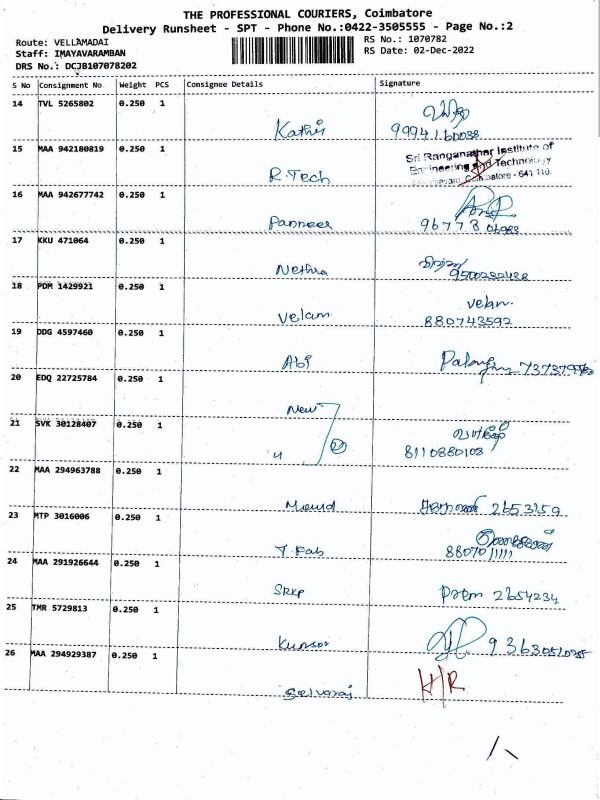 THE PROFESSIONAL COURIERS, Coimbatore
Delivery Runsheet - SPT - Phone No.:0422-3505555 - Page No.:2
Route: VELLAMADAI
RS No.: 1070782
Staff: IMAYAVARAMBAN
RS Date: 02-Dec-2022
DRS No.: DCJB107078202
S No Consignment No Weight PCS Consignee Details Signature
14 TVL 5265802 0.250 1
Kathir 9994160038
15 MAA 942180819 0.250 1
Sri Ranganathar Institute of
Engineering and Technology
Coimbatore - 641 110.
R.Tech
16 MAA 942677742 0.250 1
Panneer
17 KKU 471064 0.250 1
Nethra
18 PDM 1429921 0.250 1
Velam
880743592
19 DDG 4597460 0.250 1
Abi
20 EDQ 22725784 0.250 1
New
21 SVK 30128407 0.250 1
" 8110880108
22 MAA 294963788 0.250 1
2653259
23 MTP 3016006 0.250 1
T Fab
24 MAA 291926644 0.250 1
SRKP 2654234
25 TMR 5729813 0.250 1
26 MAA 294929387 0.250 1
H/R
Selvaraj